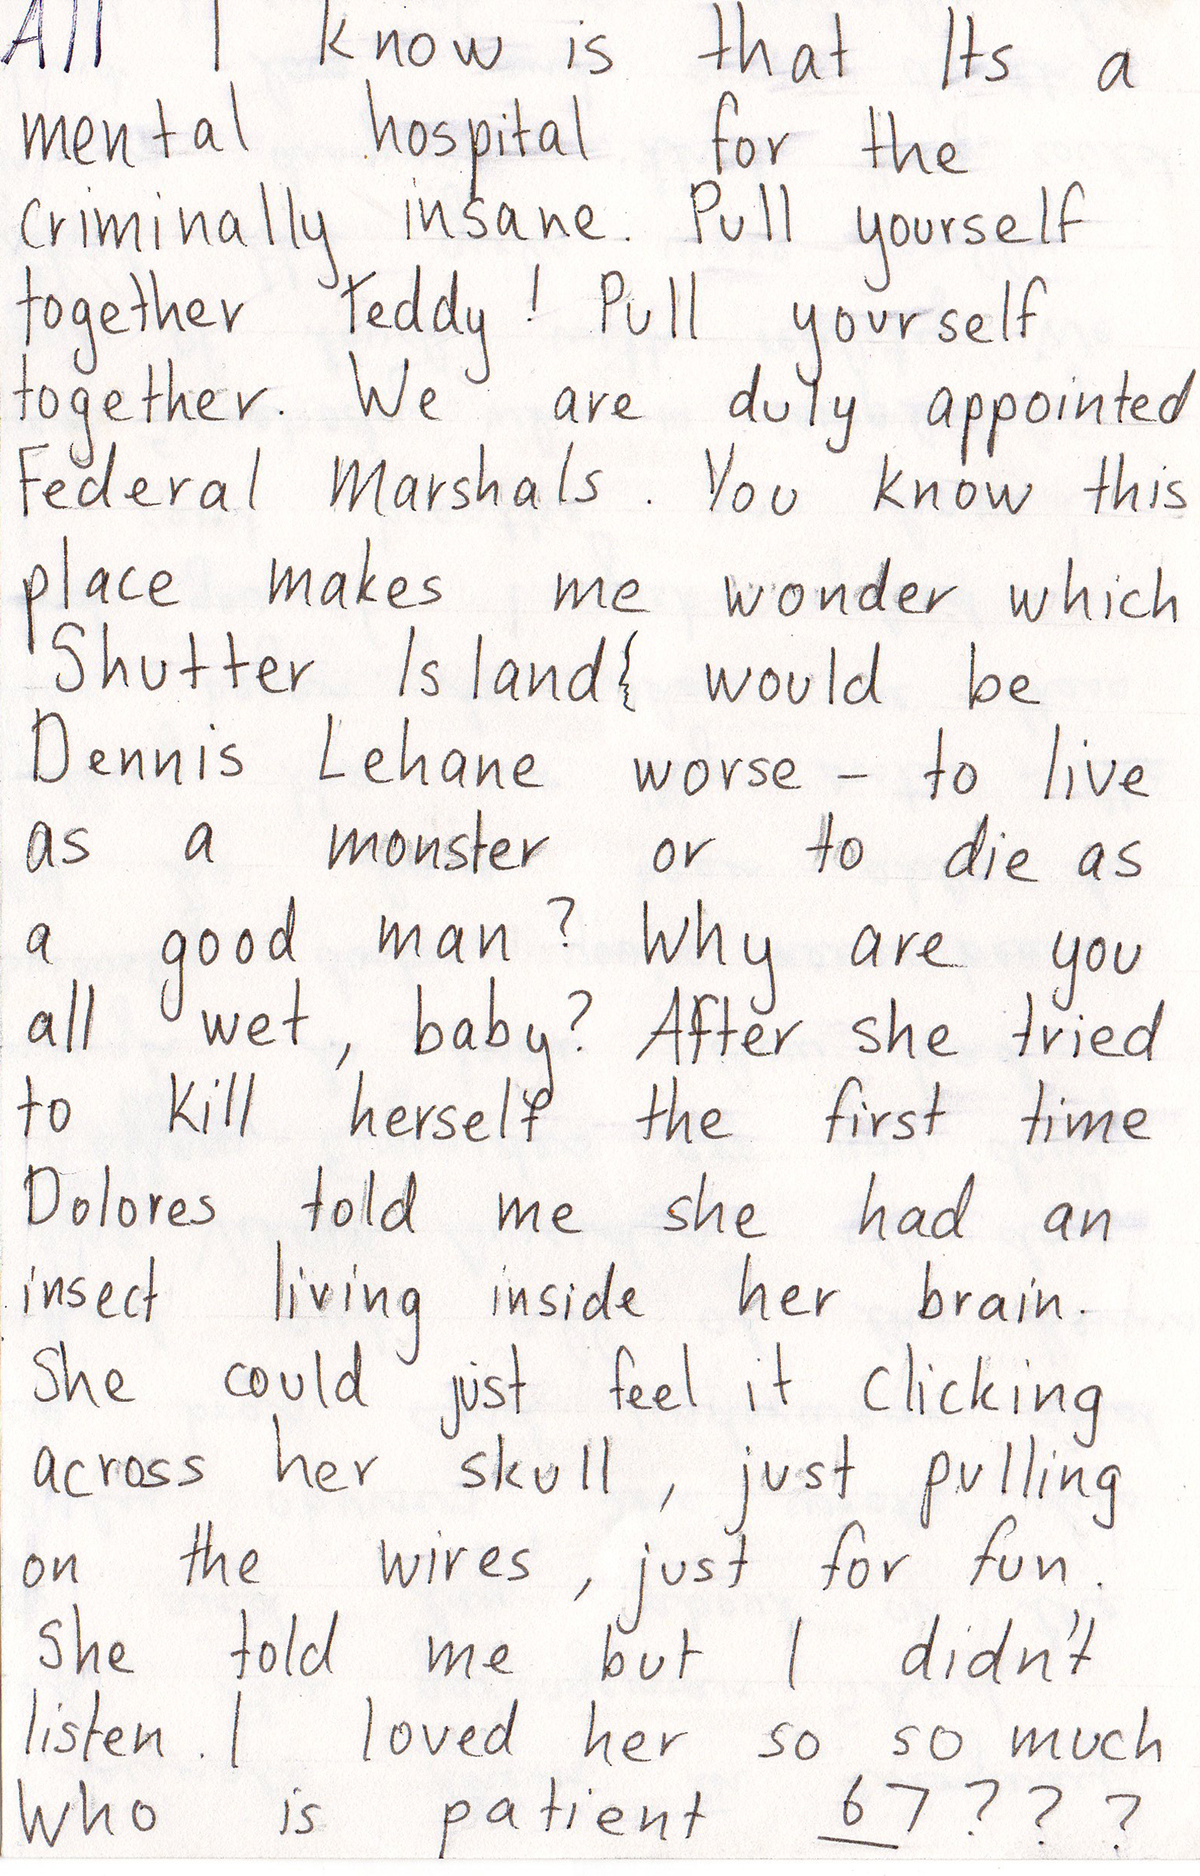 All I know is that Its a
mental hospital for the
criminally insane. Pull yourself
together Teddy! Pull yourself
together. We are duly appointed
Federal Marshals. You know this
place makes me wonder which
Shutter Island{ would be
Dennis Lehane worse – to live
as a monster or to die as
a good man? Why are you
all wet, baby? After she tried
to kill herself the first time
Dolores told me she had an
insect living inside her brain.
She could just feel it clicking
across her skull, just pulling
on the wires, just for fun.
She told me but I didn't
listen. I loved her so so much
Who is patient 67???